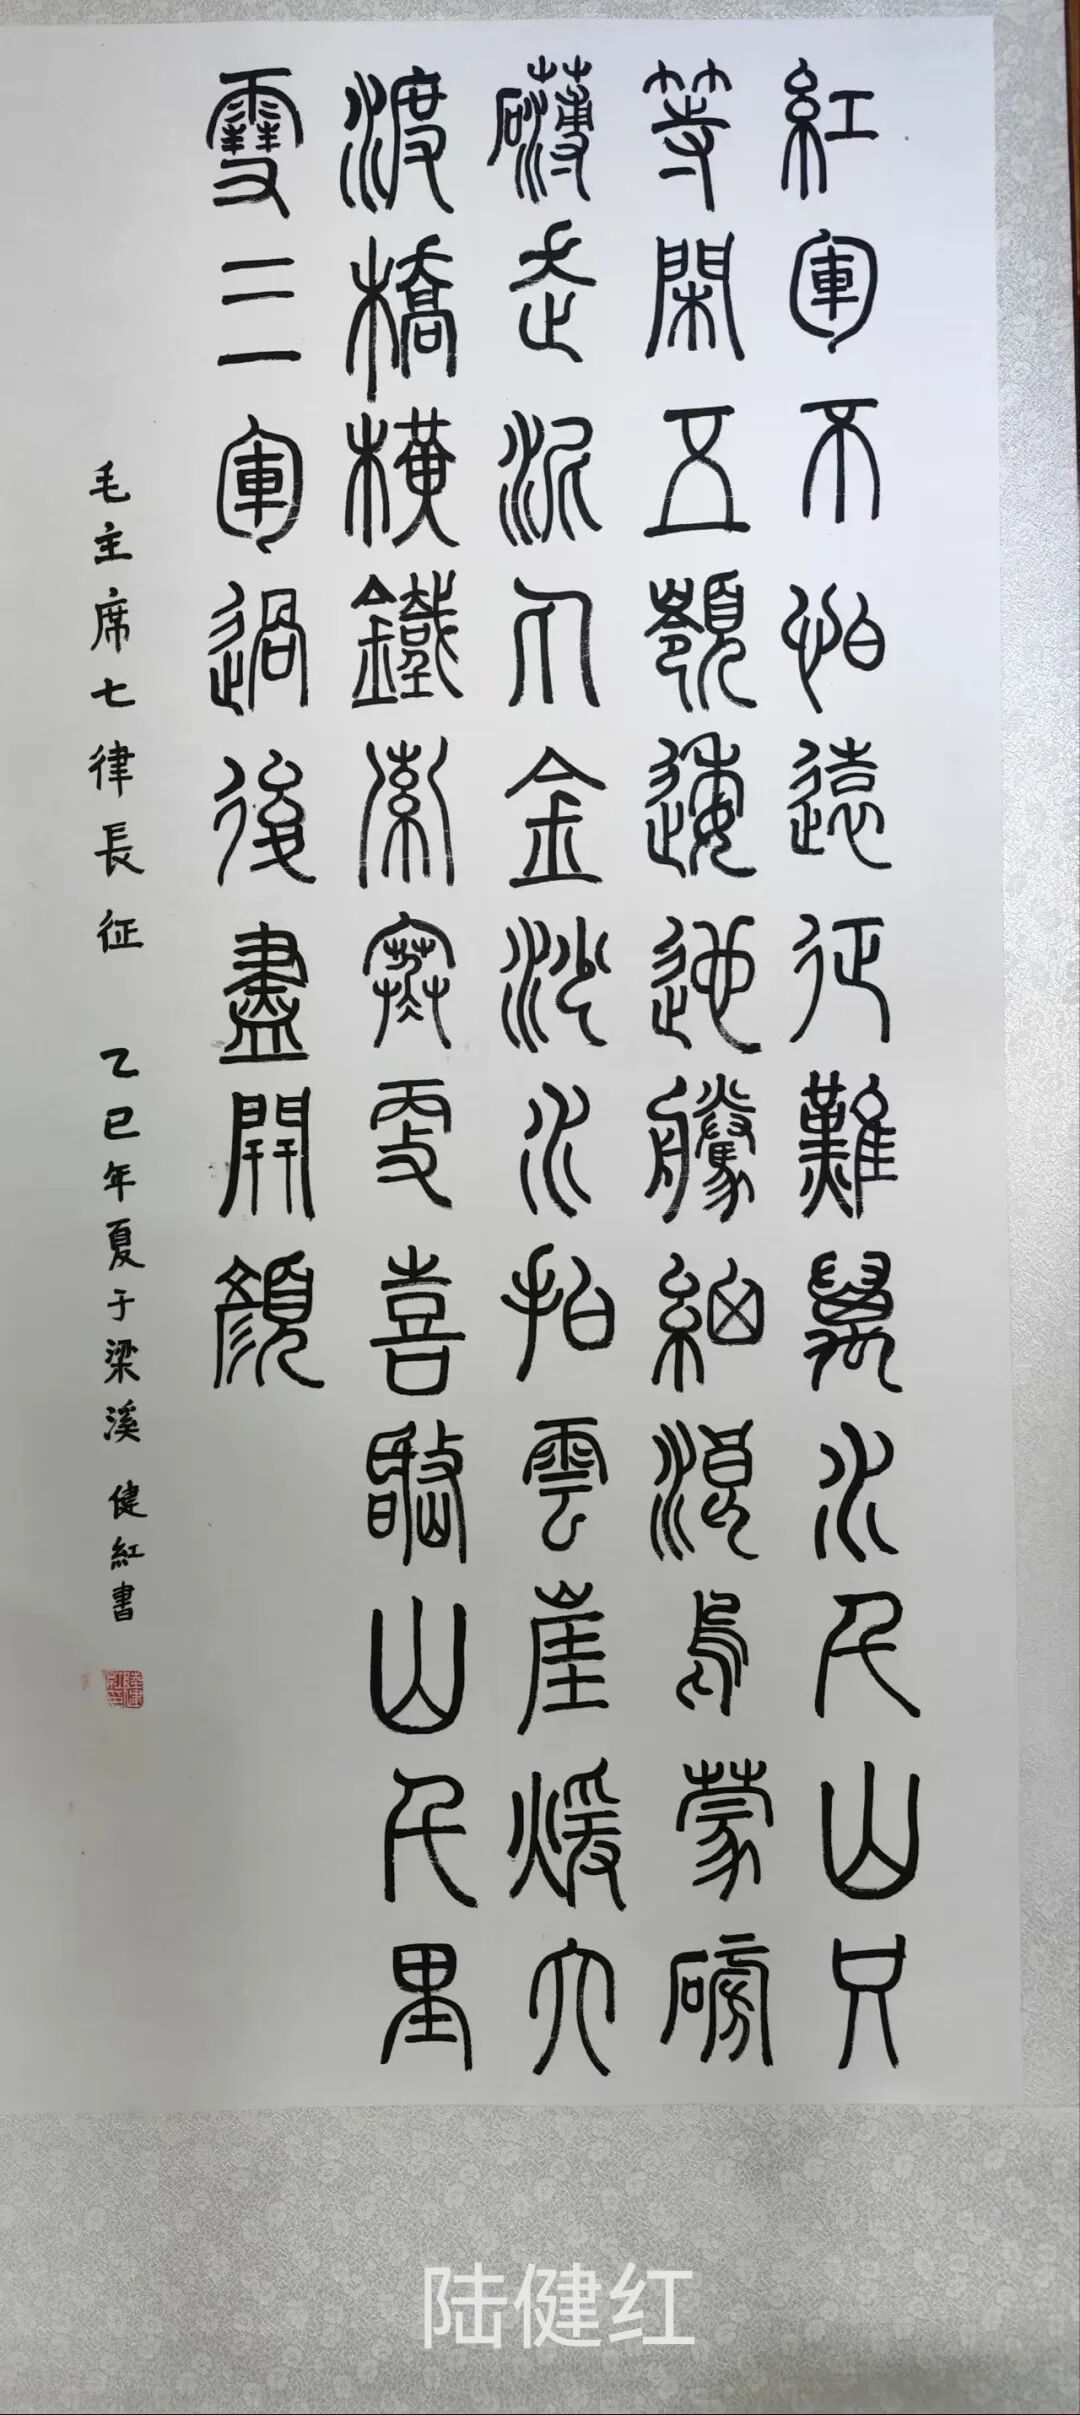 紅軍不怕遠征難萬水千山只
等閑五嶺逶迤騰細浪烏蒙磅
礴走泥丸金沙水拍雲崖暖大
渡橋橫鐵索寒更喜岷山千里
雪三軍過後盡開顏
毛主席七律長征 乙巳年夏于梁溪 健紅書
陸健紅印
陆健红